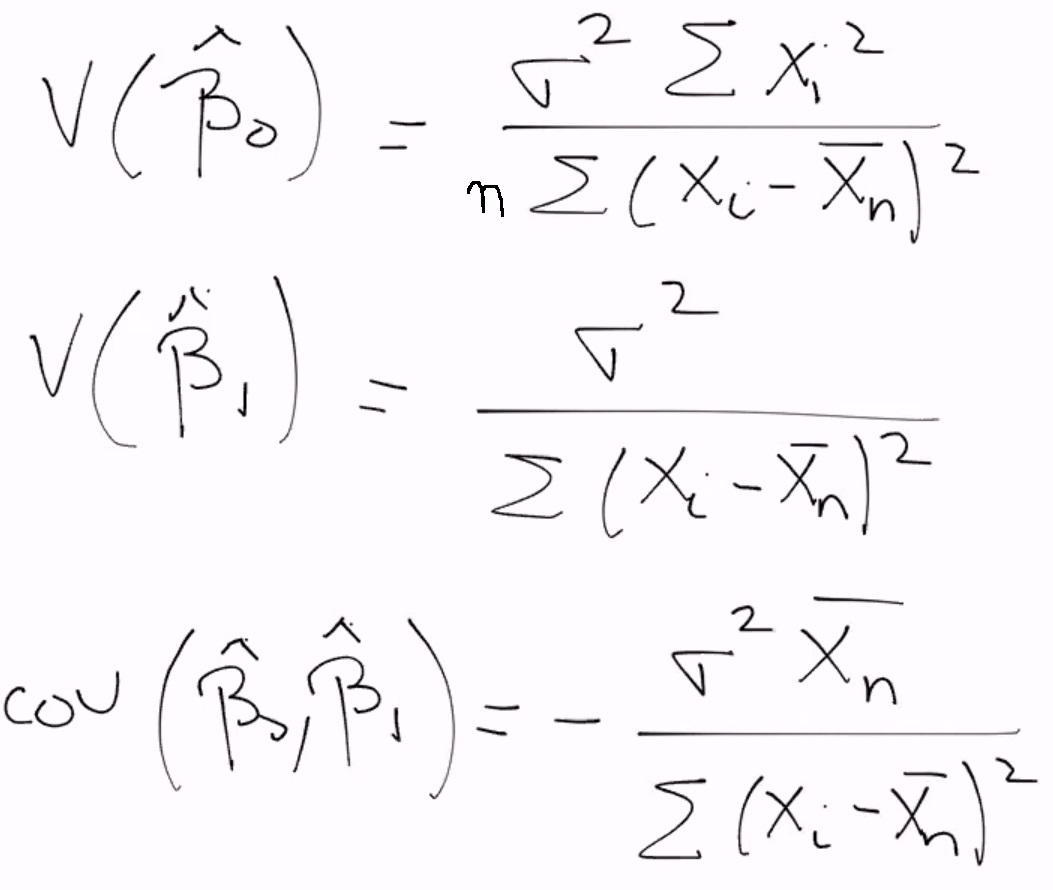 V(β̂₀) = σ² Σ Xᵢ² / n Σ (Xᵢ - X̄ₙ)²
V(β̂₁) = σ² / Σ (Xᵢ - X̄ₙ)²
cov(β̂₀, β̂₁) = - σ² X̄ₙ / Σ (Xᵢ - X̄ₙ)²